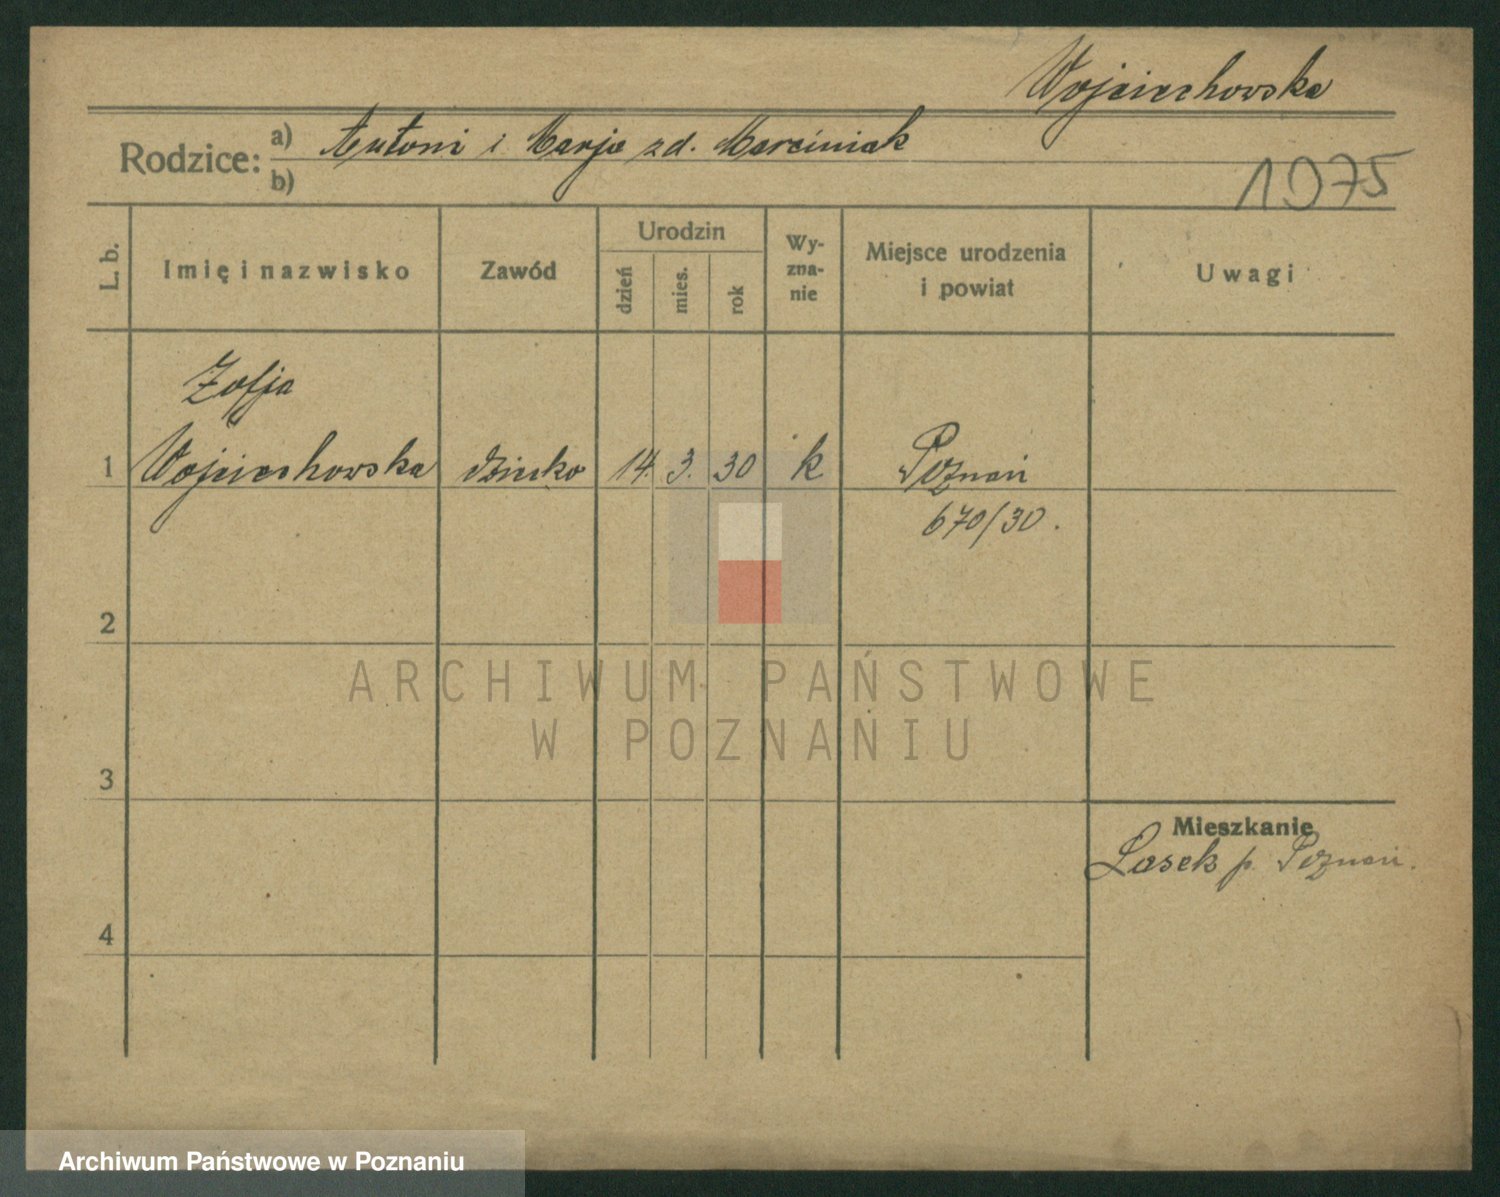 Wojciechowska
Rodzice: a) Antoni i Marja zd. Marciniak
b)
1975
L. b.
Imię i nazwisko
Zawód
Urodzin
dzień
mies.
rok
Wy-
zna-
nie
Miejsce urodzenia
i powiat
Uwagi
Zofja
1 Wojciechowska dziecko 14. 3. 30 k Poznań
670/30.
2
3
4
Mieszkanie
Lasek p. Poznań.
ARCHIWUM PAŃSTWOWE
W POZNANIU
Archiwum Państwowe w Poznaniu